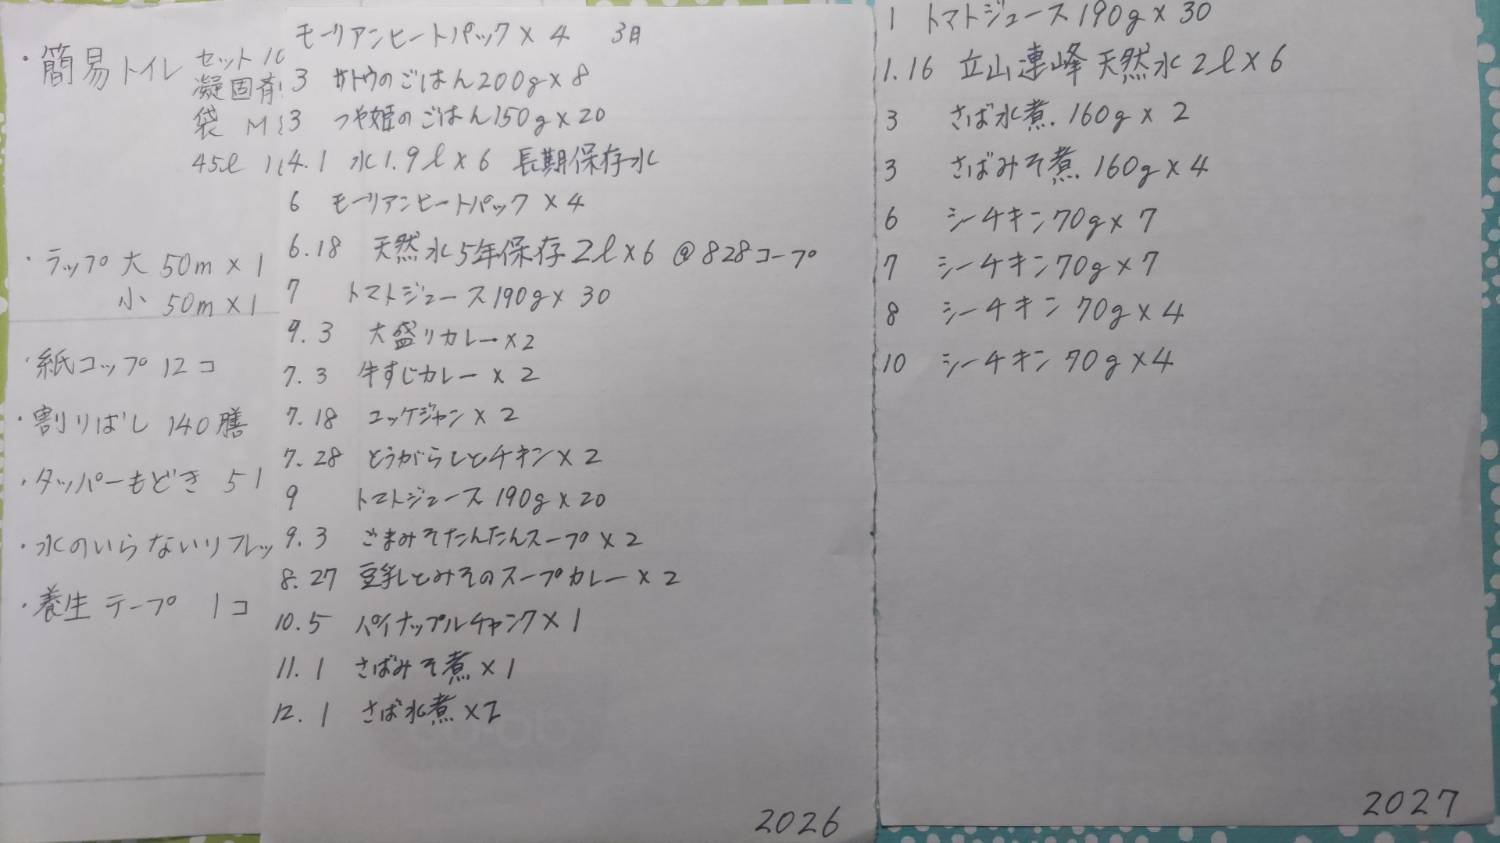 ・簡易トイレ セット
凝固剤
袋 M
45ℓ
・ラップ 大 50m×1
小 50m×1
・紙コップ 12コ
・割りばし 140膳
・タッパーもどき 51
・水のいらないリフレッ
・養生テープ 1コ
モーリアンヒートパック×4 3月
3 サトウのごはん200g×8
3 つや姫のごはん150g×20
4.1 水1.9ℓ×6 長期保存水
6 モーリアンヒートパック×4
6.18 天然水5年保存2ℓ×6 @828コープ
7 トマトジュース190g×30
9.3 大盛りカレー×2
7.3 牛すじカレー×2
7.18 ユッケジャン×2
7.28 とうがらしとチキン×2
9 トマトジュース190g×20
9.3 ごまみそたんたんスープ×2
8.27 豆乳とみそのスープカレー×2
10.5 パイナップルチャンク×1
11.1 さばみそ煮×1
12.1 さば水煮×2
2026
1 トマトジュース190g×30
1.16 立山連峰天然水2ℓ×6
3 さば水煮.160g×2
3 さばみそ煮.160g×4
6 シーチキン70g×7
7 シーチキン70g×7
8 シーチキン70g×4
10 シーチキン70g×4
2027